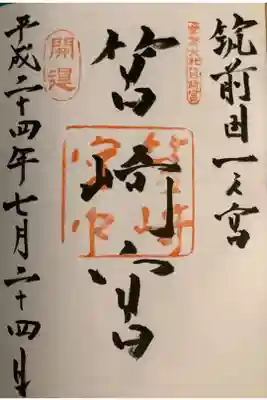 筑前国一之宮
筥崎宮
筥崎宮印
開運
平成二十四年七月二十四日